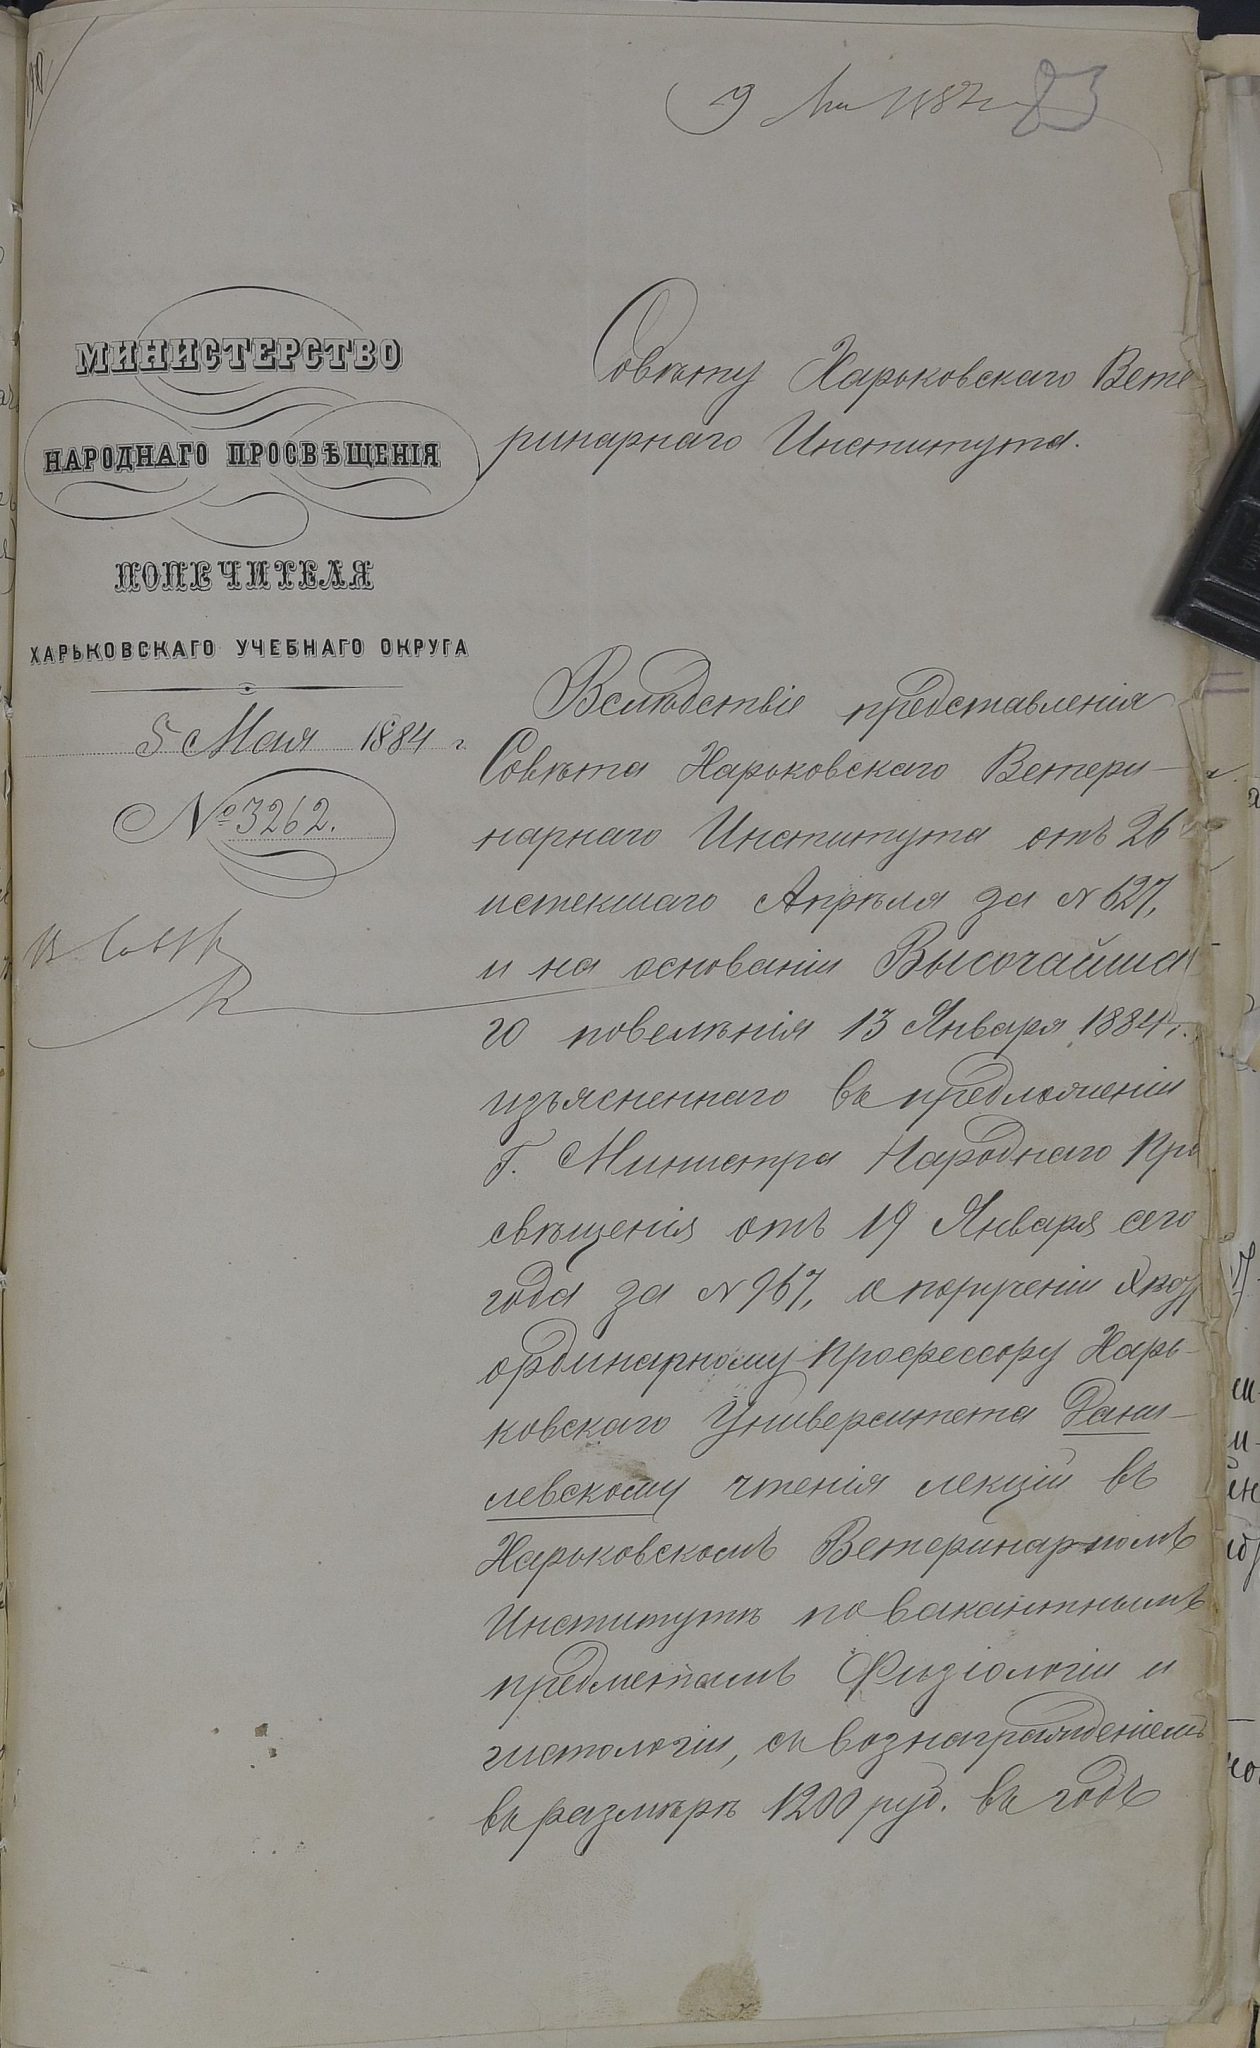 83
МИНИСТЕРСТВО
НАРОДНАГО ПРОСВѢЩЕНІЯ
ПОПЕЧИТЕЛЯ
ХАРЬКОВСКАГО УЧЕБНАГО ОКРУГА
5 Мая 1884 г.
№ 3262.
Совѣту Харьковскаго Вете
ринарнаго Института.
Вслѣдствіе представленія
Совѣта Харьковскаго Ветери-
нарнаго Института отъ 26
истекшаго Апрѣля за № 627,
и на основаніи Высочайша
го повелѣнія 13 Января 1884 г.
изъясненнаго въ предложеніи
Г. Министра Народнаго Про
свѣщенія отъ 19 Января сего
года за № 967, о порученіи Экстр
ординарному Профессору Харь-
ковскаго Университета Дани-
левскому чтенія лекцій въ
Харьковскомъ Ветеринарномъ
Институтѣ по вакантнымъ
предметамъ Физіологіи и
гистологіи, съ вознагражденіемъ
въ размѣрѣ 1200 руб. въ годъ